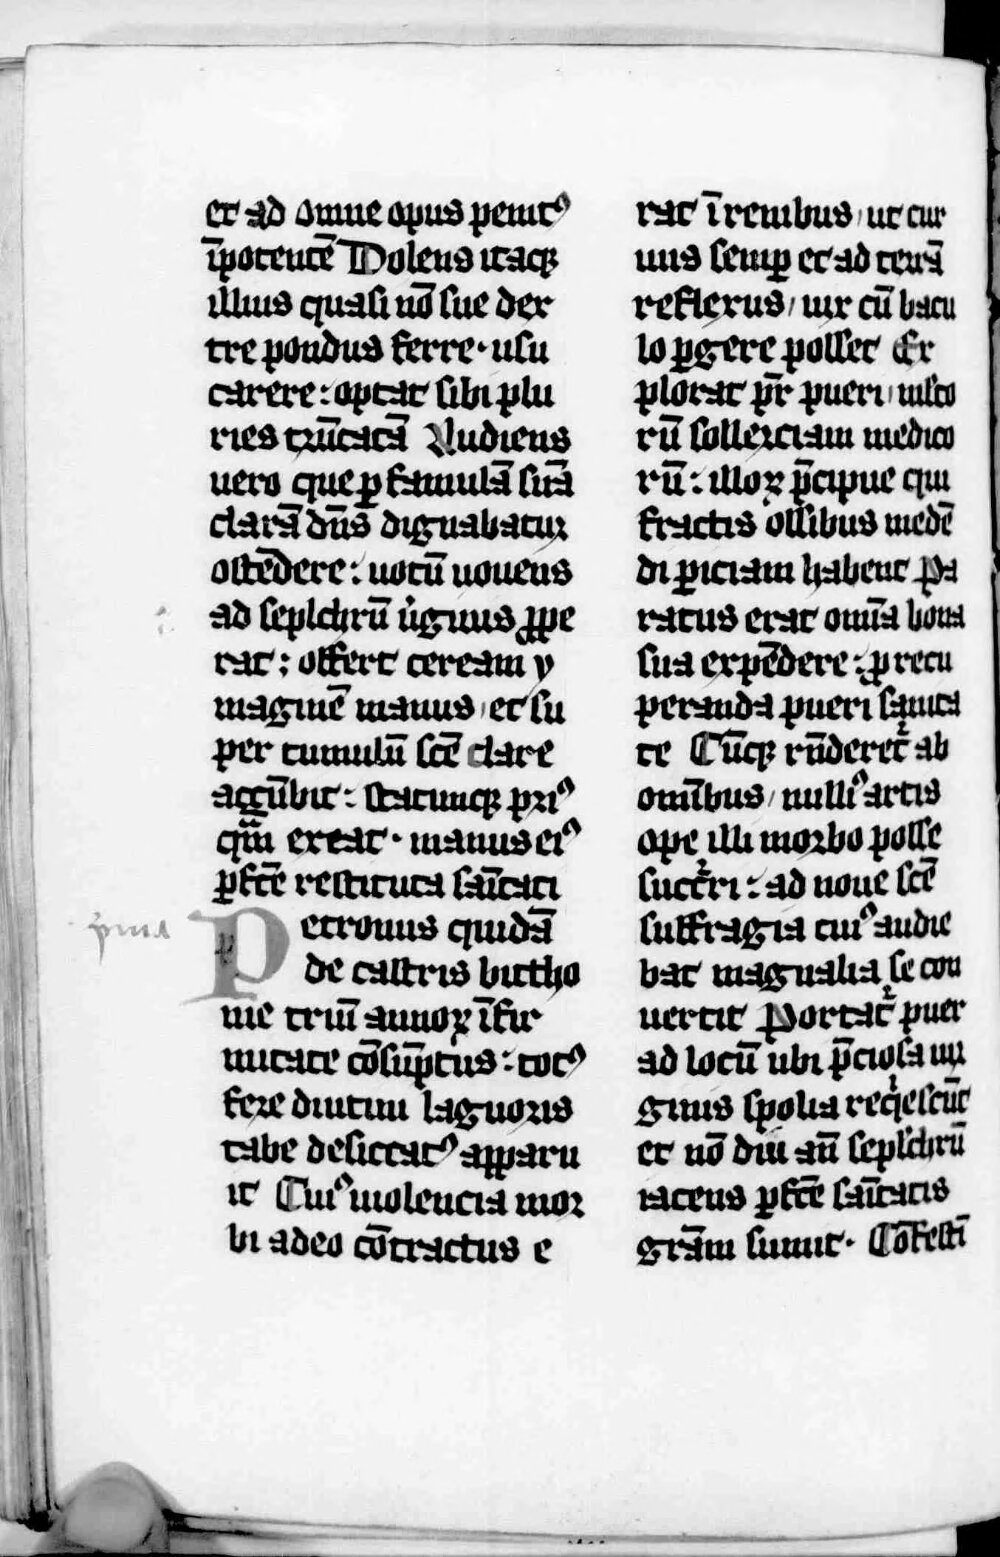 et ad omne opus penitꝰ
īpotentē Dolens itaqꝫ
illius quasi nō sue dex
tre pondus ferre · usu
carere : optat sibi plu
ries trūcatā Audiens
uero que ꝑ famulā suā
clarā dn̄s dignabatur
ostēdere : uotū uouens
ad seplchrū v̓ginis ꝓpe
rat : offert ceream y
maginē manus / et su
per tumulū scē clare
accūbit : Statimqꝫ priꝰ
qᷓm exeat · manus eiꝰ
ꝑfcē restituta sāitati
p̓ma
Petronus quidā
de castris bictho
nie triū annoꝝ īfir
mitate cōsūptus : totꝰ
fere diutini lagnoris
tabe desiccatꝰ apparu
it Cuiꝰ uiolencia mor
bi adeo cōtractus e
rat ī renibus / ut cur
uus semꝑ et ad terrā
reflexus / uix cū bacu
lo ꝑgere posset Ex
plorat pr̄ pueri / uisco
rū sollerciam medico
rū : illoꝝ p̄cipue qui
fractis ossibus medē
di ꝑiciam habent Pa
ratus erat omīa bona
sua expēdere : ꝓ recu
peranda pueri sanita
te Cūqꝫ rn̄deret᷑ ab
omībus / nulliꝰ artis
ope illi morbo posse
succr̓ri : ad noue scē
suffragia cuiꝰ audie
bat magnalia se con
uertit Portat᷑ puer
ad locū ubi p̄ciosa uir
ginis spolia req̓escūt
et nō diu an̄ seplchrū
iacens ꝑfcē sāitatis
grām sumit · Cōfestī